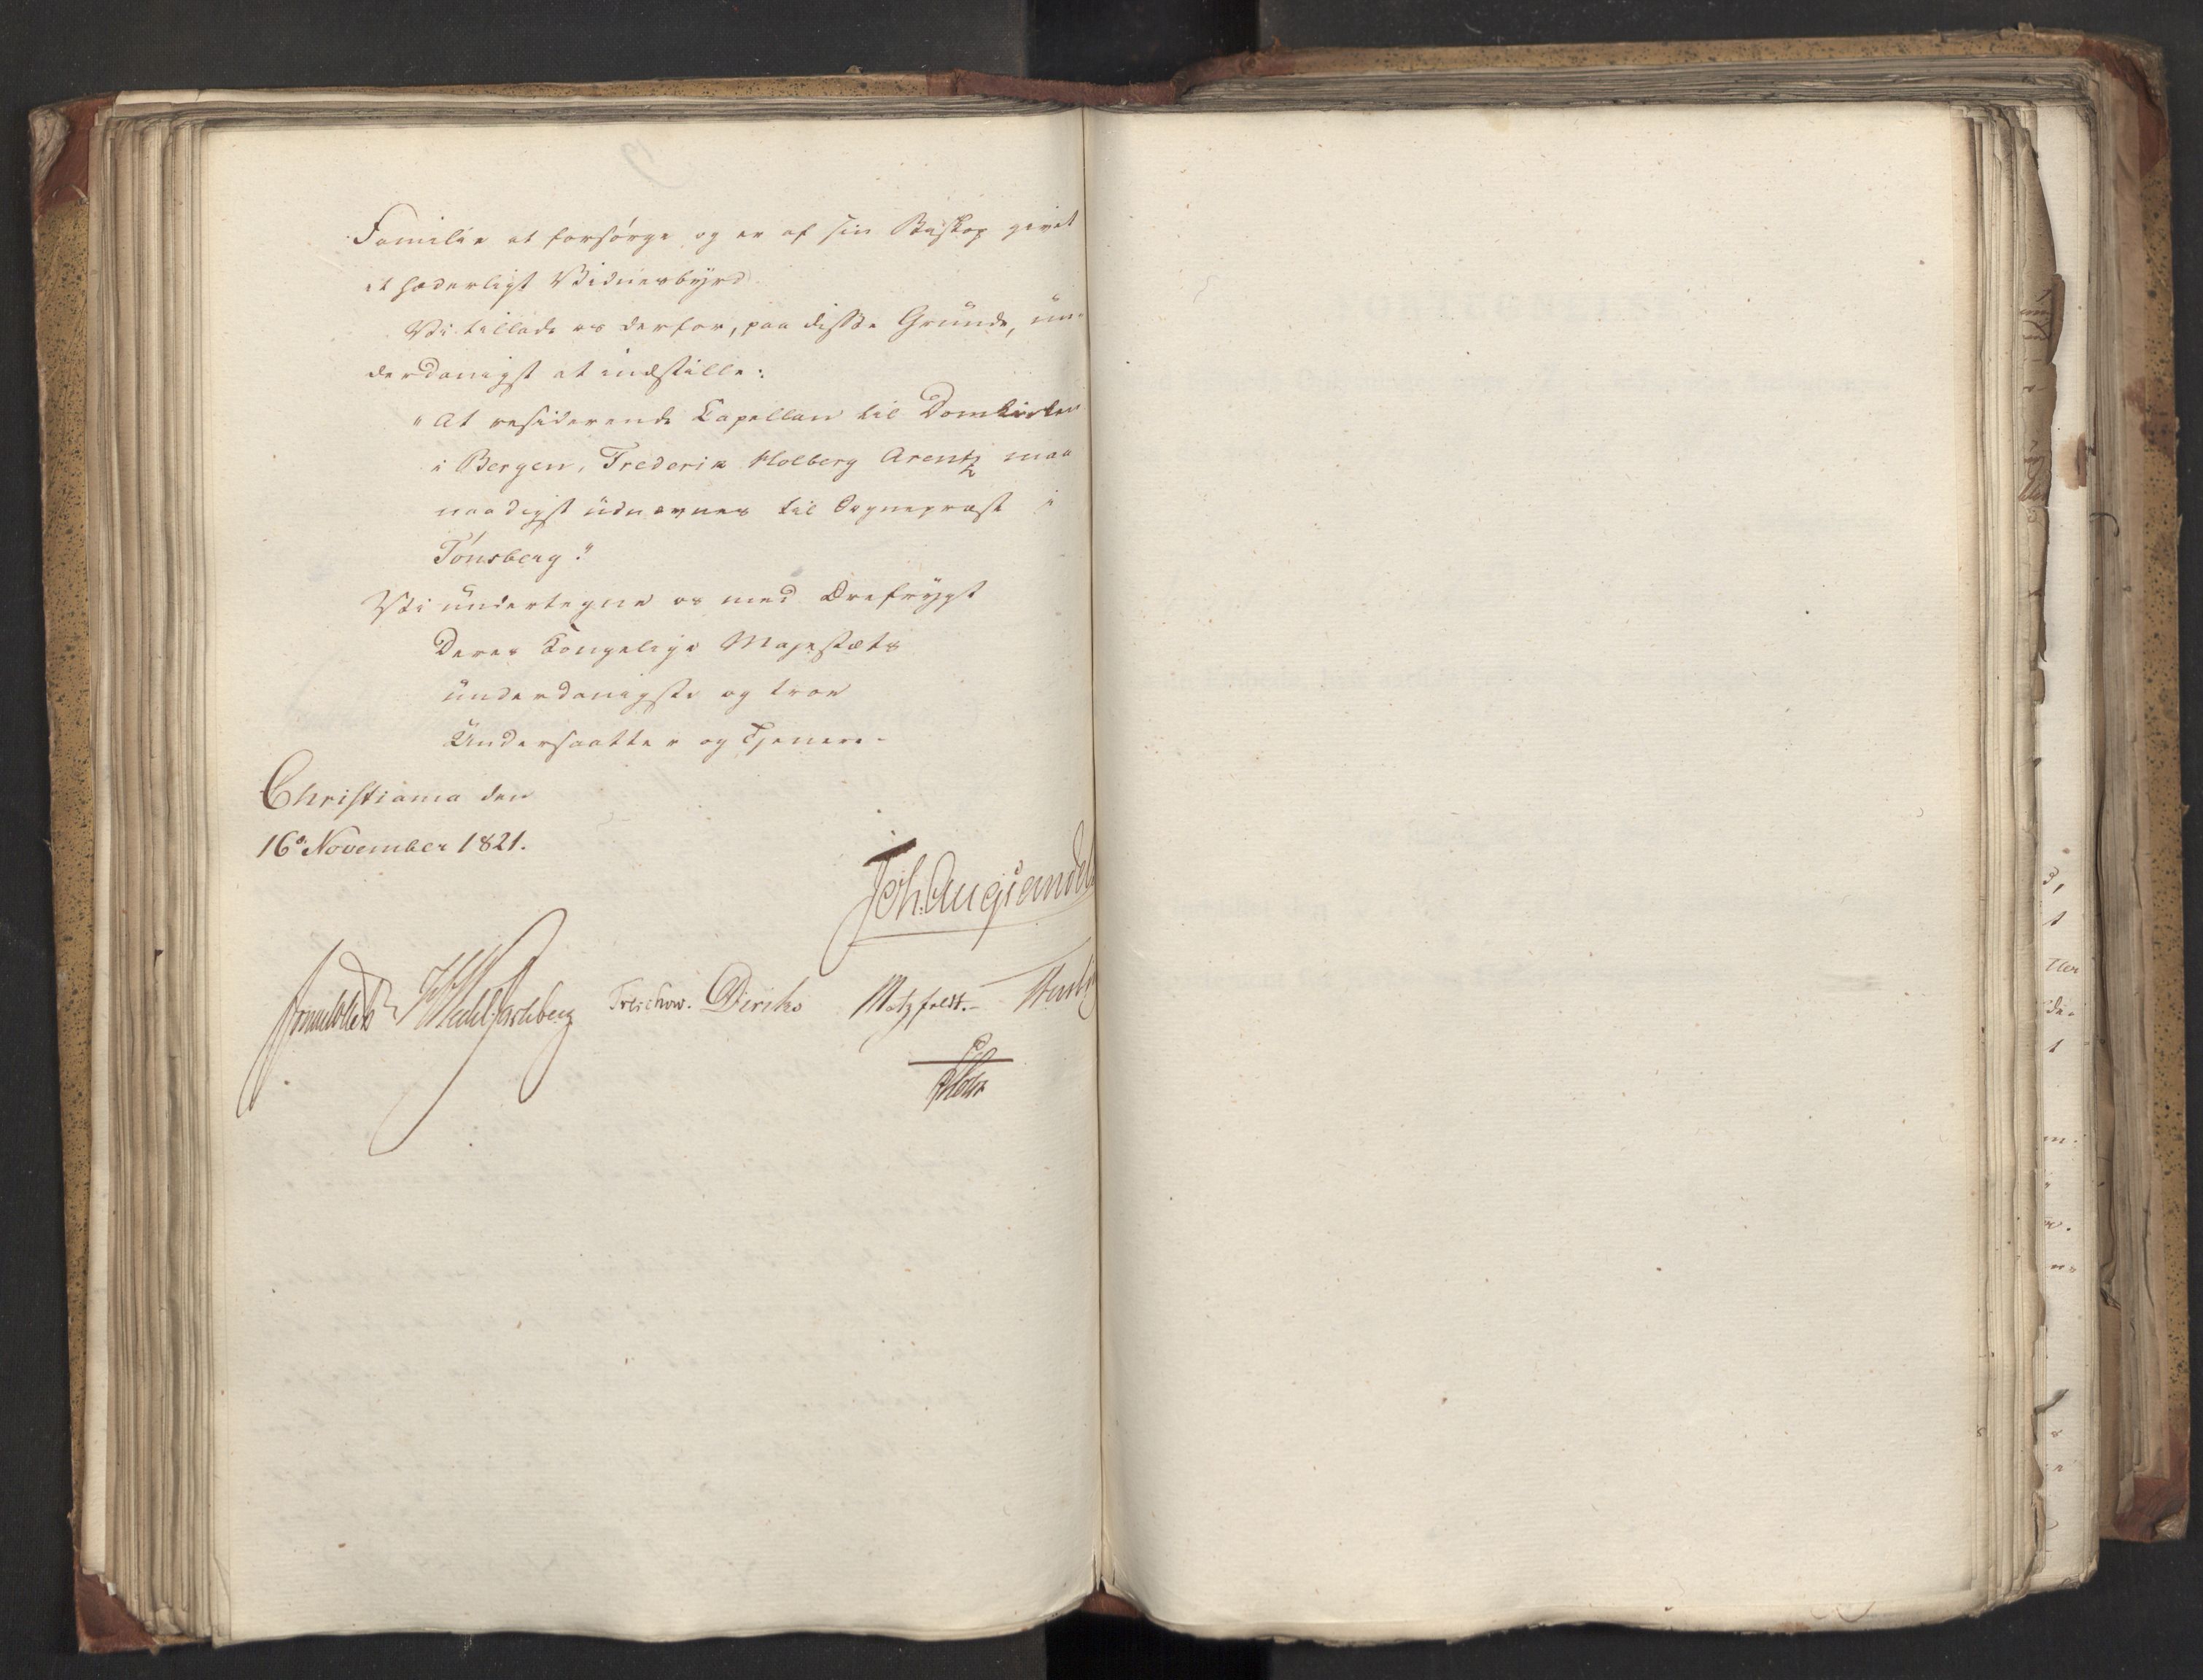 Familie at forsørge og er af sin Biskop givet
et hæderligt Vidnesbyrd.
Vi tillade os derfor, paa disse Grunde, un-
derdanigst at indstille:
"At residerende Capellan til Domkirken
i Bergen, Frederik Holberg Arentz maa
naadigst udnævnes til Sognepræst i
Tønsberg."
Vi undertegne os med Ærefrygt
Deres Kongelige Majestæts
underdanigste og troe
Undersaatter og Tjenere.
Christiania den
16de November 1821.
Joh. Aug. Sandels
Sommerhielm Wedel Jarlsberg Treschow. Diriks Motzfeldt.
Holst